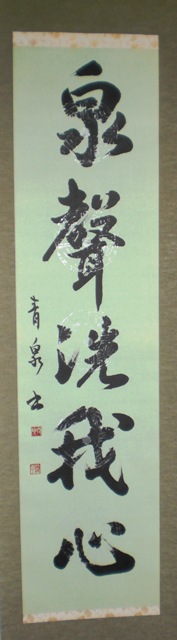 泉聲洗我心
青泉書